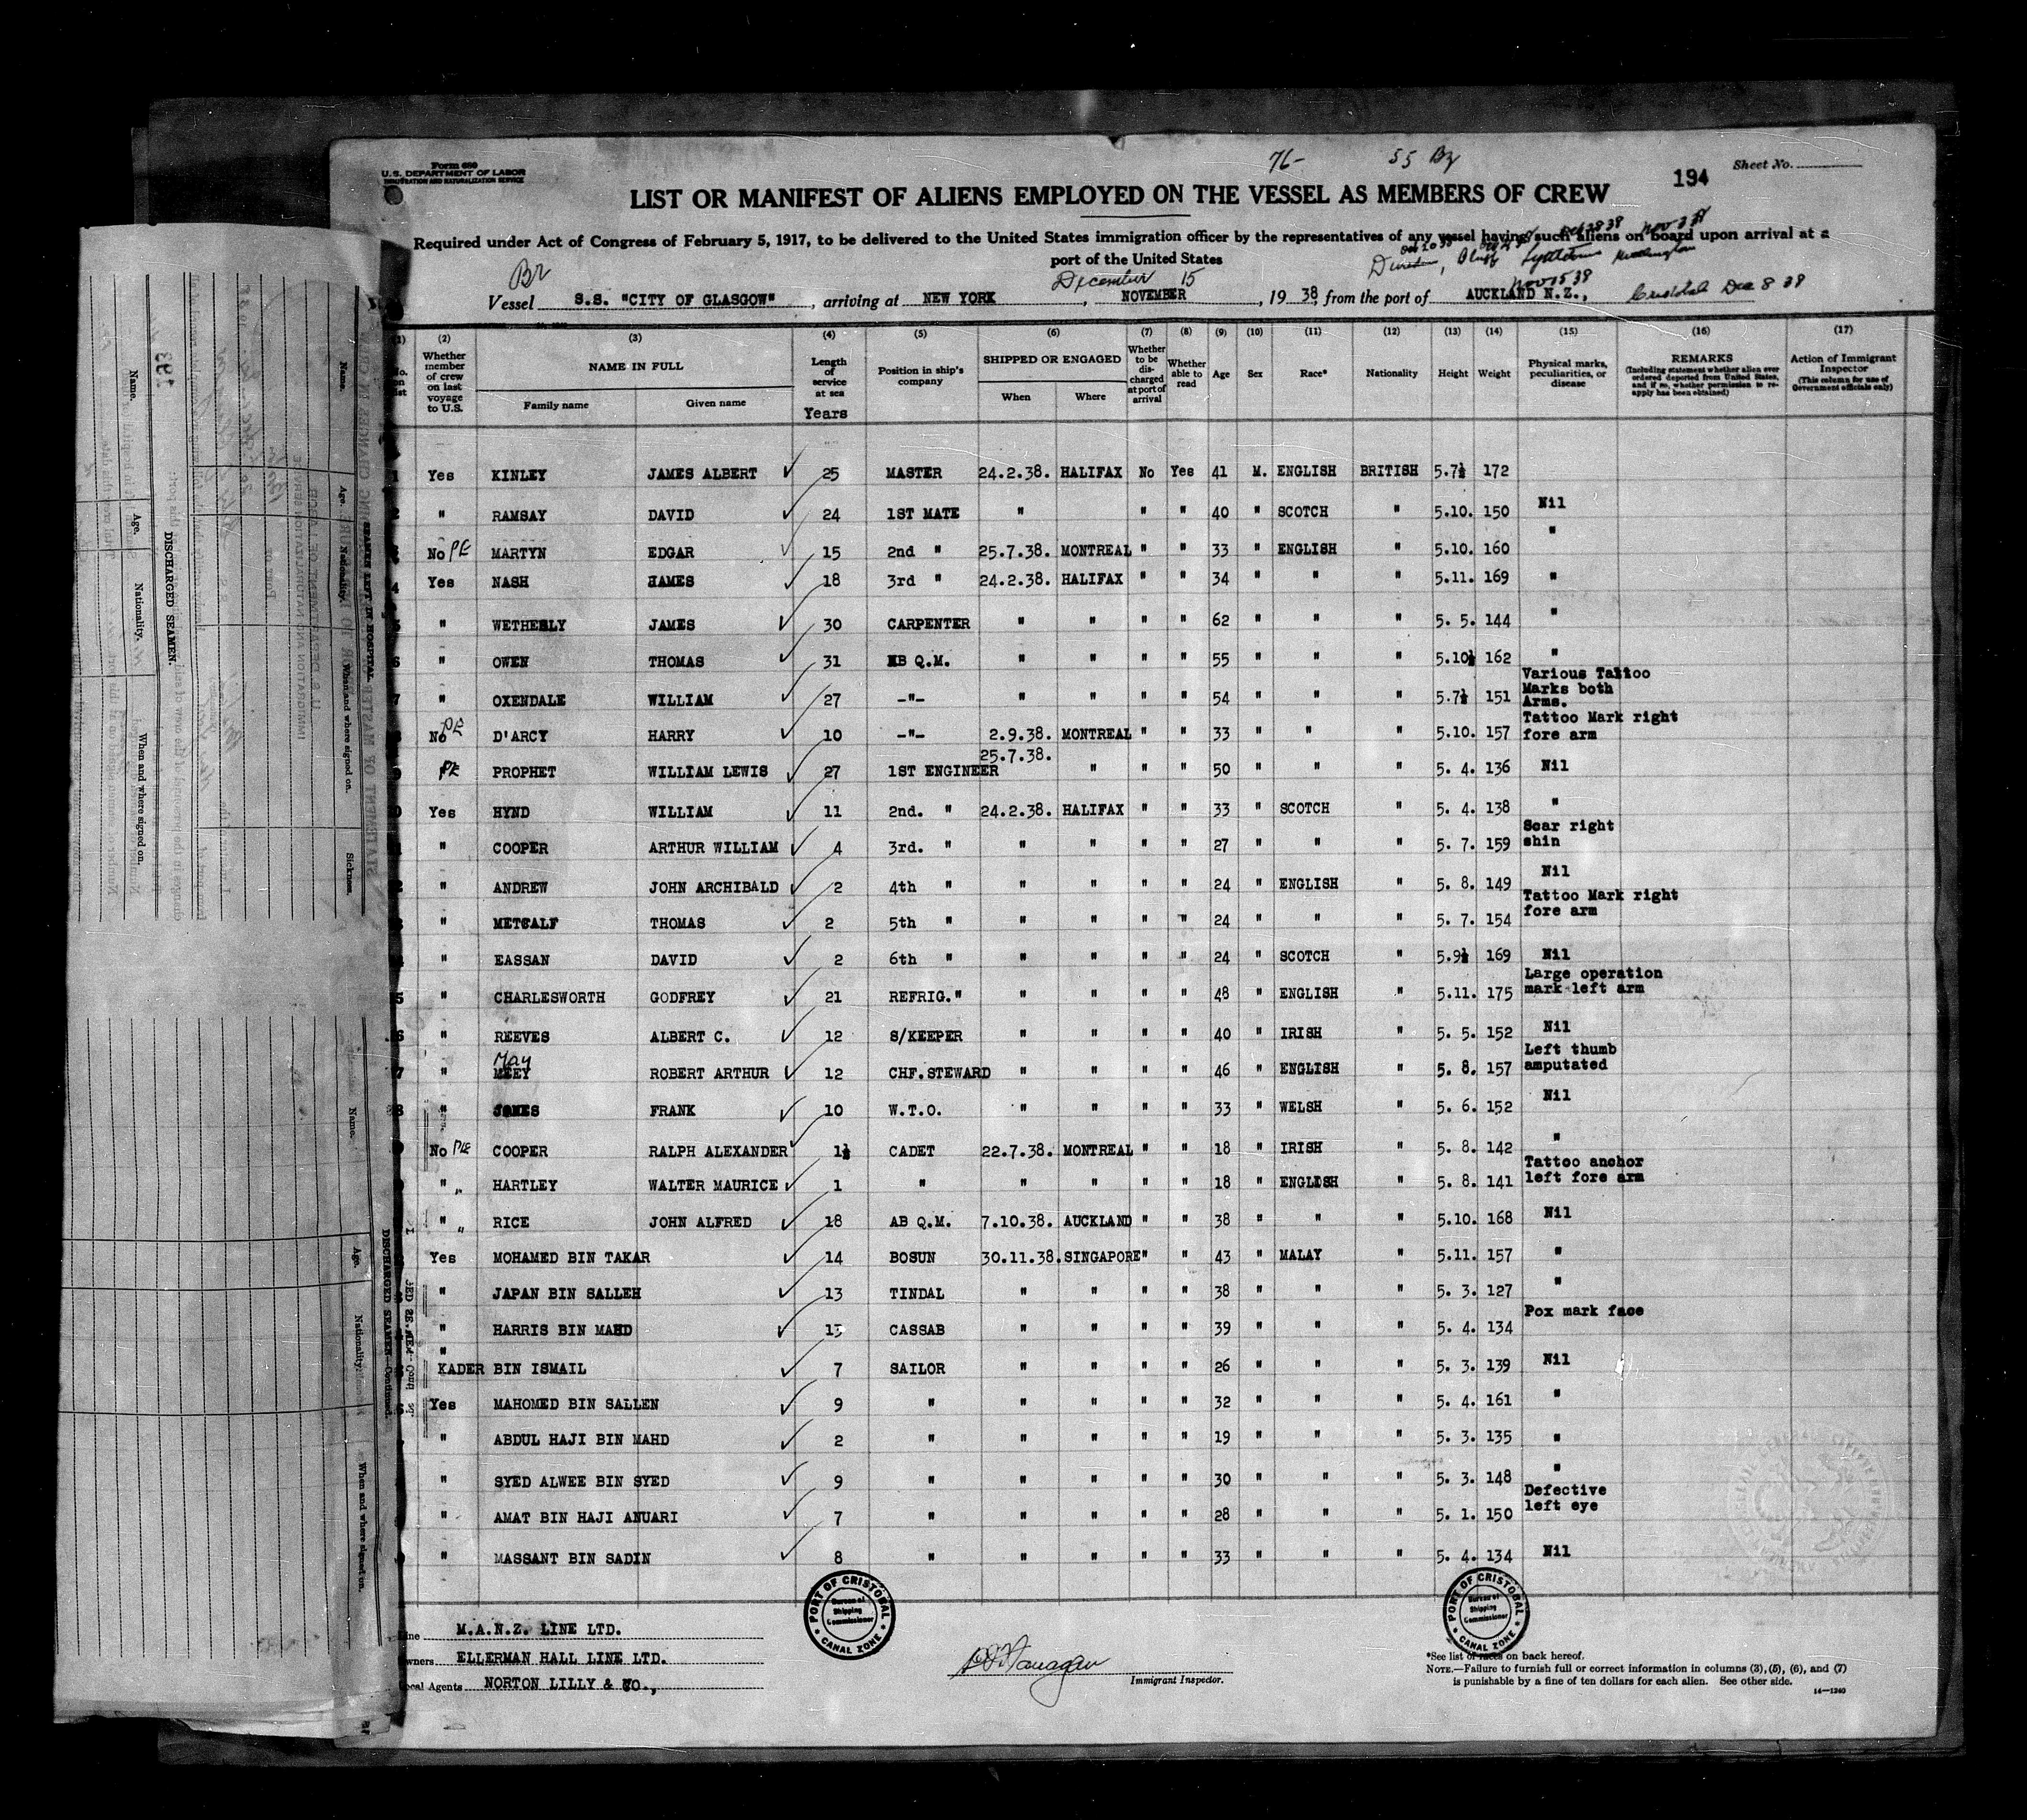 Form 680
U.S. DEPARTMENT OF LABOR
IMMIGRATION AND NATURALIZATION SERVICE
76-
55
194
Sheet No.
LIST OR MANIFEST OF ALIENS EMPLOYED ON THE VESSEL AS MEMBERS OF CREW
Required under Act of Congress of February 5, 1917, to be delivered to the United States immigration officer by the representatives of any vessel having such aliens on board upon arrival at a
port of the United States
Br
December 15
Nov 15 38
Vessel S.S. "CITY OF GLASGOW", arriving at NEW YORK, NOVEMBER, 1938, from the port of AUCKLAND N.Z., Cristobal Dec 8 38
(1) (2) (3) (4) (5) (6) (7) (8) (9) (10) (11) (12) (13) (14) (15) (16) (17)
Whether member of crew on last voyage to U.S.
NAME IN FULL
Family name Given name
Length of service at sea
Years
Position in ship's company
SHIPPED OR ENGAGED
When Where
Whether to be discharged at port of arrival
Whether able to read
Age Sex Race* Nationality Height Weight
Physical marks, peculiarities, or disease
REMARKS
(Including statement whether alien ever ordered deported from United States, and if so, whether permission to reapply has been obtained)
Action of Immigrant Inspector
(This column for use of Government officials only)
1 Yes KINLEY JAMES ALBERT 25 MASTER 24.2.38. HALIFAX No Yes 41 M. ENGLISH BRITISH 5.7½ 172
" RAMSAY DAVID 24 1ST MATE " " " 40 " SCOTCH " 5.10. 150 Nil
No PE MARTYN EDGAR 15 2nd " 25.7.38. MONTREAL " " 33 " ENGLISH " 5.10. 160 "
4 Yes NASH JAMES 18 3rd " 24.2.38. HALIFAX " " 34 " " " 5.11. 169 "
" WETHERLY JAMES 30 CARPENTER " " " " 62 " " " 5. 5. 144 "
6 " OWEN THOMAS 31 AB Q.M. " " " " 55 " " " 5.10½ 162 "
7 " OXENDALE WILLIAM 27 -"- " " " " 54 " " " 5.7½ 151 Various Tattoo Marks both Arms.
No PE D'ARCY HARRY 10 -"- 2.9.38. MONTREAL " " 33 " " " 5.10. 157 Tattoo Mark right fore arm
PE PROPHET WILLIAM LEWIS 27 1ST ENGINEER 25.7.38. " " " 50 " " " 5. 4. 136 Nil
Yes HYND WILLIAM 11 2nd. " 24.2.38. HALIFAX " " 33 " SCOTCH " 5. 4. 138 "
" COOPER ARTHUR WILLIAM 4 3rd. " " " " " 27 " " " 5. 7. 159 Scar right shin
" ANDREW JOHN ARCHIBALD 2 4th " " " " " 24 " ENGLISH " 5. 8. 149 Nil
" METCALF THOMAS 2 5th " " " " " 24 " " " 5. 7. 154 Tattoo Mark right fore arm
" EASSAN DAVID 2 6th " " " " " 24 " SCOTCH " 5.9½ 169 Nil
5 " CHARLESWORTH GODFREY 21 REFRIG." " " " " 48 " ENGLISH " 5.11. 175 Large operation mark left arm
6 " REEVES ALBERT C. 12 S/KEEPER " " " " 40 " IRISH " 5. 5. 152 Nil
May
7 " ROBERT ARTHUR 12 CHF.STEWARD " " " " 46 " ENGLISH " 5. 8. 157 Left thumb amputated
8 " JONES FRANK 10 W.T.O. " " " " 33 " WELSH " 5. 6. 152 Nil
No PE COOPER RALPH ALEXANDER 1½ CADET 22.7.38. MONTREAL " " 18 " IRISH " 5. 8. 142 "
" " HARTLEY WALTER MAURICE 1 " " " " " 18 " ENGLISH " 5. 8. 141 Tattoo anchor left fore arm
" " RICE JOHN ALFRED 18 AB Q.M. 7.10.38. AUCKLAND " " 38 " " " 5.10. 168 Nil
Yes MOHAMED BIN TAKAR 14 BOSUN 30.11.38. SINGAPORE " " 43 " MALAY " 5.11. 157 "
" JAPAN BIN SALLEH 13 TINDAL " " " " 38 " " " 5. 3. 127 "
" HARRIS BIN MAHD 15 CASSAB " " " " 39 " " " 5. 4. 134 Pox mark face
" KADER BIN ISMAIL 7 SAILOR " " " " 26 " " " 5. 3. 139 Nil
Yes MAHOMED BIN SALLEN 9 " " " " " 32 " " " 5. 4. 161 "
" ABDUL HAJI BIN MAHD 2 " " " " " 19 " " " 5. 3. 135 "
" SYED ALWEE BIN SYED 9 " " " " " 30 " " " 5. 3. 148 "
" AMAT BIN HAJI ANUARI 7 " " " " " 28 " " " 5. 1. 150 Defective left eye
" MASSANT BIN SADIN 8 " " " " " 33 " " " 5. 4. 134 Nil
PORT OF CRISTOBAL
Bureau of Shipping Commissioner
CANAL ZONE
PORT OF CRISTOBAL
Bureau of Shipping Commissioner
CANAL ZONE
Line M.A.N.Z. LINE LTD.
Owners ELLERMAN HALL LINE LTD.
Local Agents NORTON LILLY & CO.,
Immigrant Inspector.
*See list of races on back hereof.
NOTE.—Failure to furnish full or correct information in columns (3), (5), (6), and (7)
is punishable by a fine of ten dollars for each alien. See other side.
14—1240
193
DISCHARGED SEAMEN.
Name. Age. Nationality. When and where signed on.
SEAMEN LEFT IN HOSPITAL
Name. Age. Nationality. When and where signed on. Sickness.
DISCHARGED SEAMEN—Continued.
Name. Age. Nationality. When and where signed on.